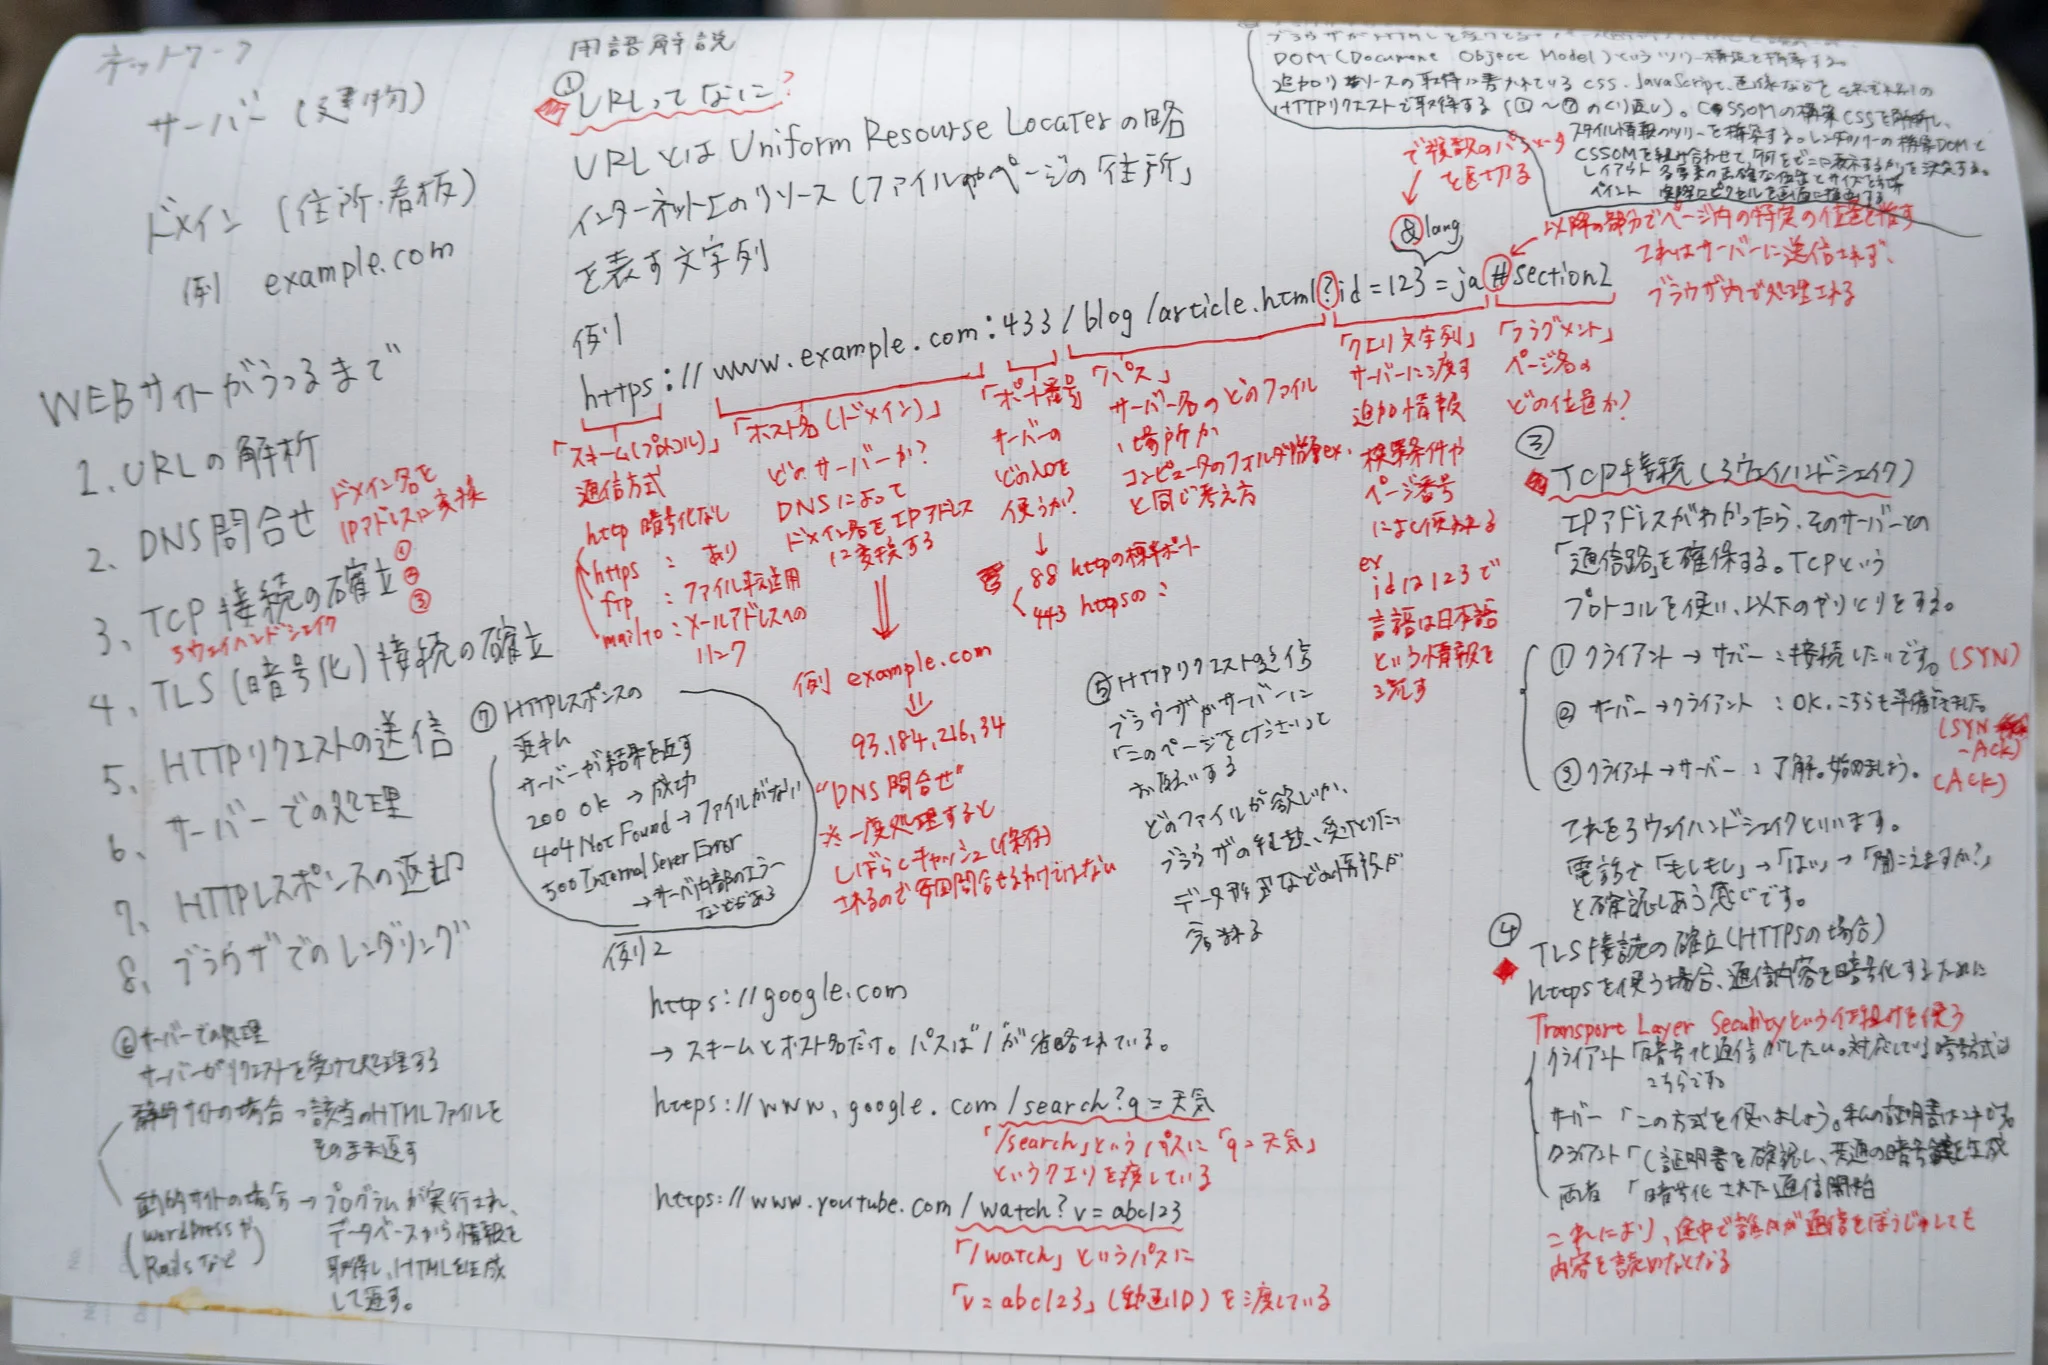 ネットワーク
サーバー (建物)
ドメイン (住所・看板)
例 example.com
WEBサイトがうつるまで
1. URLの解析
2、DNS問合せ
ドメイン名を
IPアドレスに変換
3、TCP接続の確立
①
②
③
3ウェイハンドシェイク
4、TLS(暗号化)接続の確立
5、HTTPリクエストの送信
6、サーバーでの処理
7、HTTPレスポンスの返却
8、ブラウザでのレンダリング
⑥サーバーでの処理
サーバーがリクエストを受けて処理する
静的サイトの場合→該当のHTMLファイルを
そのまま返す
動的サイトの場合→プログラムが実行され、
(wordPressや
Railsなど)
データベースから情報を
取得し、HTMLを生成
して返す。
用語解説
①
URLってなに?
URLとはUniform Resourse Locaterの略
インターネット上のリソース(ファイルやページの「住所」
を表す文字列
例1
https://www.example.com:433/blog/article.html?id=123=ja#section2
&lang
で複数のパラメータ
を区切る
以降の部分でページ内の特定の位置を指す
これはサーバーに送信されず、
ブラウザ内で処理される
「スキーム(プロトコル)」
通信方式
http 暗号化なし
https : あり
ftp : ファイル転送用
mailto : メールアドレスへの
リンク
「ホスト名(ドメイン)」
どのサーバーか?
DNSによって
ドメイン名をIPアドレス
に変換する
例 example.com
93.184.216.34
"DNS問合せ"
※一度処理すると
しばらくキャッシュ(保存)
されるので毎回問合せるわけではない
「ポート番号」
サーバーの
どの入口を
使うか?
88 httpの標準ポート
443 httpsの :
「パス」
サーバー名のどのファイル
場所か
コンピュータのフォルダ階層ex.
と同じ考え方
「クエリ文字列」
サーバーに渡す
追加情報
検索条件や
ページ番号
によく使われる
ex
idは123で
言語は日本語
という情報を
渡す
「フラグメント」
ページ名の
どの位置か?
⑦HTTPレスポンスの
返却
サーバーが結果を返す
200 OK → 成功
404 Not Found→ファイルがない
500 Internal Server Error
→サーバ内部のエラー
などがある
⑤HTTPリクエスト送信
ブラウザがサーバーに
「このページをくださいっと
お願いする
どのファイルが欲しいか、
ブラウザの種類、受けとりたい
データ形式などの情報が
含まれる
例2
https://google.com
→ スキームとホスト名だけ。パスは「/」が省略されている。
https://www.google.com/search?q=天気
「/search」というパスに「q=天気」
というクエリを渡している
https://www.youtube.com/watch?v=abc123
「/watch」というパスに
「v=abc123」(動画ID)を渡している
DOM(Document Object Model)というツリー構造を構築する。
追加リソースの取得に書かれているCSS、JavaScript、画像などを
HTTPリクエストで取得する(①〜⑦のくり返し)。CSSOMの構築CSSを解析し、
スタイル情報のツリーを構築する。レンダツリーの構築DOMと
CSSOMを組み合わせて、何をどこに表示するかを決定する。
レイアウト 各要素の正確な位置とサイズを計算
ペイント 実際にピクセルを画面に描画する
③
TCP接続(3ウェイハンドシェイク)
IPアドレスがわかったら、そのサーバーとの
「通信路」を確保する。TCPという
プロトコルを使い、以下のやりとりをする。
① クライアント→サーバー : 接続したいです。(SYN)
② サーバー→クライアント : OK、こちらも準備できました。
(SYN
-ACK)
③ クライアント→サーバー : 了解。始めましょう。(ACK)
これを3ウェイハンドシェイクといいます。
電話で「もしもし」→「はい」→「聞こえますか?」
と確認しあう感じです。
④
TLS接続の確立(HTTPSの場合)
httpsを使う場合、通信内容を暗号化するために
Transport Layer Securityという仕組みを使う
クライアント「暗号化通信がしたい。対応している暗号方式は
こちらです
サーバー「この方式を使いましょう。私の証明書はコチです。
クライアント「(証明書を確認し、共通の暗号鍵を生成
両者「暗号化された通信開始
これにより、途中で誰かが通信をぼうじゅしても
内容を読めなくなる